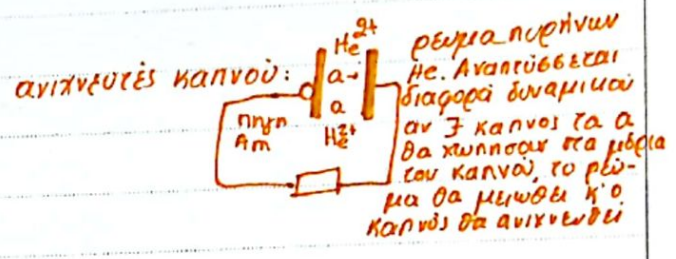 ανιχνευτές καπνού:
He²⁺
α→
α
He²⁺
πηγη
Am
ρευμα πυρήνων
He. Αναπτύσσεται
διαφορά δυναμικού
αν ∃ καπνος τα α
θα χωπησαν στα μόρια
του καπνού, το ρεύ-
μα θα μειωθεί κ' ο
καπνός θα ανιχνευθεί